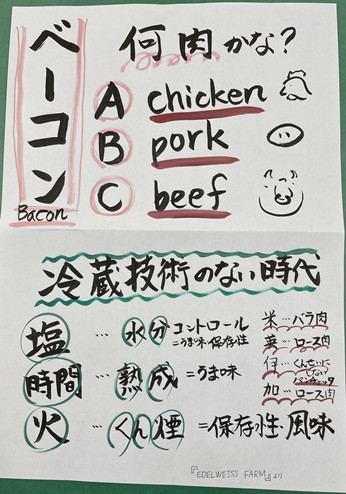 ベーコン
Bacon
何肉かな?
A chicken
B pork
C beef
冷蔵技術のない時代
塩 … 水分コントロール
=うま味・保存性
時間 … 熟成=うま味
火 … くん煙=保存性・風味
米…バラ肉
英…ロース肉
伊…くんせいに
しない
パンチェッタ
加…ロース肉
『EDELWEISS FARM』より